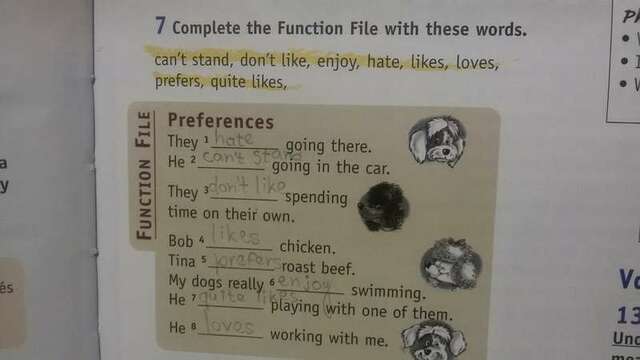 7 Complete the Function File with these words.
can't stand, don't like, enjoy, hate, likes, loves,
prefers, quite likes,
FUNCTION FILE
Preferences
They 1 hate going there.
He 2 can't stand going in the car.
They 3 don't like spending
time on their own.
Bob 4 likes chicken.
Tina 5 prefers roast beef.
My dogs really 6 enjoy swimming.
He 7 quite likes playing with one of them.
He 8 loves working with me.
a
y
és
13